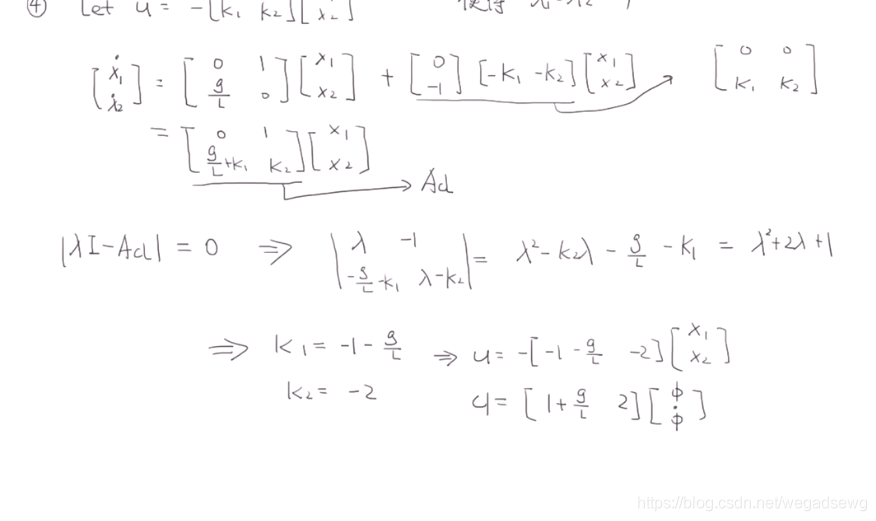 ④ Let u = -[k₁ k₂][x₂]
[ẋ₁ ẋ₂] = [0 1; g/L 0][x₁ x₂] + [0 -1][-k₁ -k₂][x₁ x₂] → [0 0; k₁ k₂]
= [0 1; g/L+k₁ k₂][x₁ x₂]
→ Acl
|λI-Acl| = 0 ⇒ |λ -1; -g/L-k₁ λ-k₂| = λ²-k₂λ-g/L-k₁ = λ²+2λ+1
⇒ k₁ = -1-g/L ⇒ u = -[-1-g/L -2][x₁ x₂]
k₂ = -2 u = [1+g/L 2][ϕ ϕ̇]
https://blog.csdn.net/wegadsewg